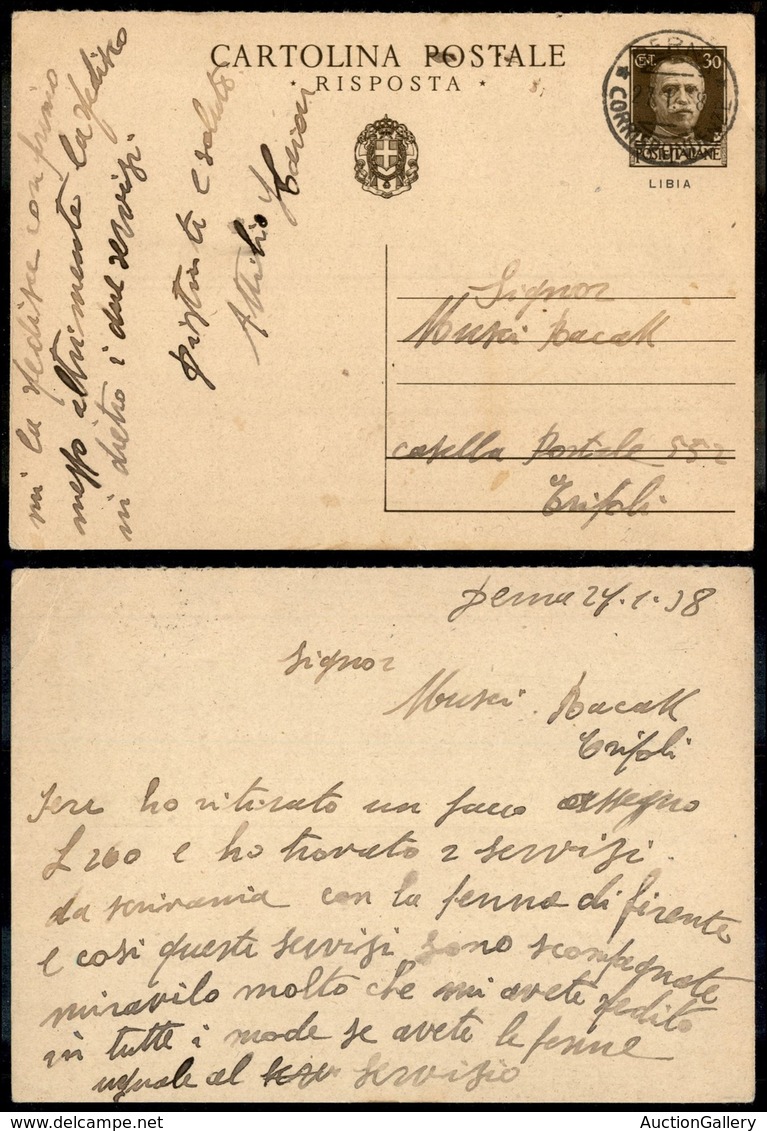 CARTOLINA POSTALE
* RISPOSTA *
CENT. 30
POSTE ITALIANE
LIBIA
Signor
Musci Bacall
casella Postale 552
Tripoli
mi la spedisce con primo
mezzo altrimente la spedisco
in dietro i due servizi
distinti e saluti
Attilio
Derna 24.1.38
Signor
Musci Bacall
Tripoli
Ieri ho ritirato un pacco assegno
L 200 e ho trovato 2 servizi
da scrivania con la penna di
e cosi questi servizi sono scompagnate
miravilo molto che mi avete spedito
in tutte i mode se avete le penne
uguale al servisio
AuctionGallery